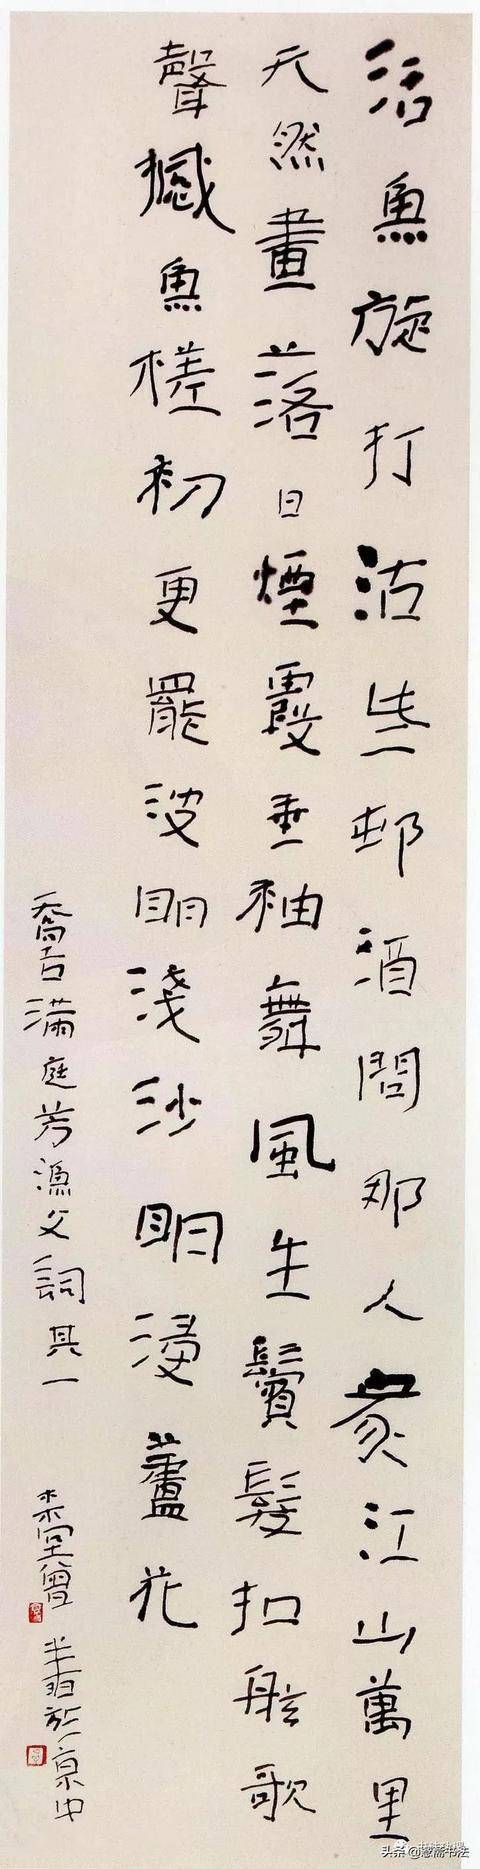 活魚旋打沽些邨酒問那人家江山萬里
天然畫落日煙霞垂袖舞風生鬢髮扣舷歌
聲撼魚槎初更罷波明淺沙明浸蘆花
喬吉滿庭芳漁父詞其一 木木堂曾翔於京中
头条 书法